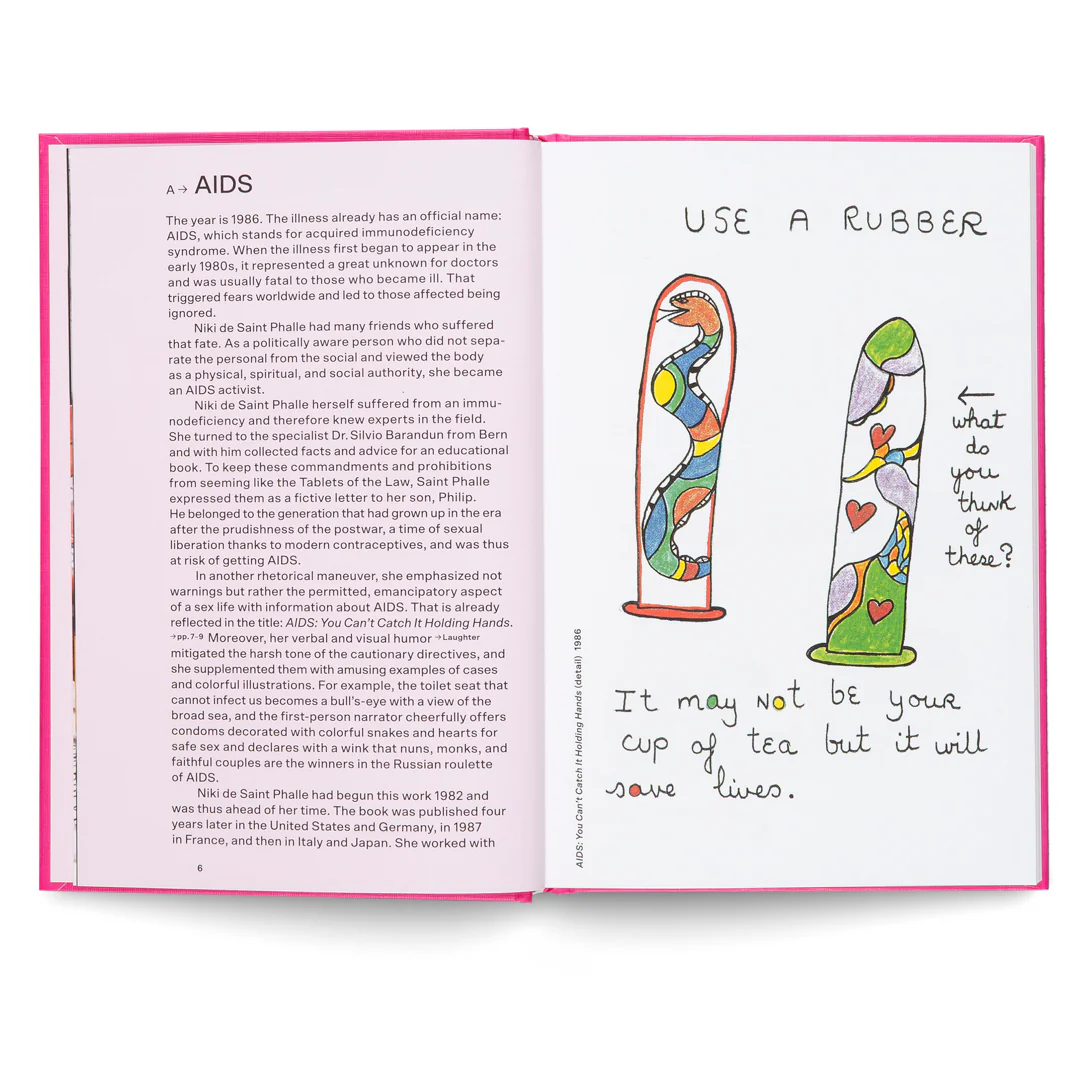 A → AIDS
The year is 1986. The illness already has an official name:
AIDS, which stands for acquired immunodeficiency
syndrome. When the illness first began to appear in the
early 1980s, it represented a great unknown for doctors
and was usually fatal to those who became ill. That
triggered fears worldwide and led to those affected being
ignored.
Niki de Saint Phalle had many friends who suffered
that fate. As a politically aware person who did not sepa-
rate the personal from the social and viewed the body
as a physical, spiritual, and social authority, she became
an AIDS activist.
Niki de Saint Phalle herself suffered from an immu-
nodeficiency and therefore knew experts in the field.
She turned to the specialist Dr. Silvio Barandun from Bern
and with him collected facts and advice for an educational
book. To keep these commandments and prohibitions
from seeming like the Tablets of the Law, Saint Phalle
expressed them as a fictive letter to her son, Philip.
He belonged to the generation that had grown up in the era
after the prudishness of the postwar, a time of sexual
liberation thanks to modern contraceptives, and was thus
at risk of getting AIDS.
In another rhetorical maneuver, she emphasized not
warnings but rather the permitted, emancipatory aspect
of a sex life with information about AIDS. That is already
reflected in the title: AIDS: You Can't Catch It Holding Hands.
→ pp. 7–9 Moreover, her verbal and visual humor → Laughter
mitigated the harsh tone of the cautionary directives, and
she supplemented them with amusing examples of cases
and colorful illustrations. For example, the toilet seat that
cannot infect us becomes a bull's-eye with a view of the
broad sea, and the first-person narrator cheerfully offers
condoms decorated with colorful snakes and hearts for
safe sex and declares with a wink that nuns, monks, and
faithful couples are the winners in the Russian roulette
of AIDS.
Niki de Saint Phalle had begun this work 1982 and
was thus ahead of her time. The book was published four
years later in the United States and Germany, in 1987
in France, and then in Italy and Japan. She worked with
6
AIDS: You Can't Catch It Holding Hands (detail) 1986
USE A RUBBER
← what
do
you
think
of
these?
It may NOt be your
cup of tea but it will
save lives.